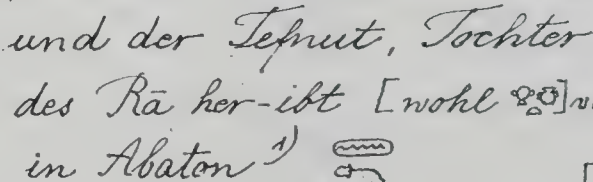 und der Tefnut, Tochter
des Rā her-ibt [wohl
in Abaton 1)